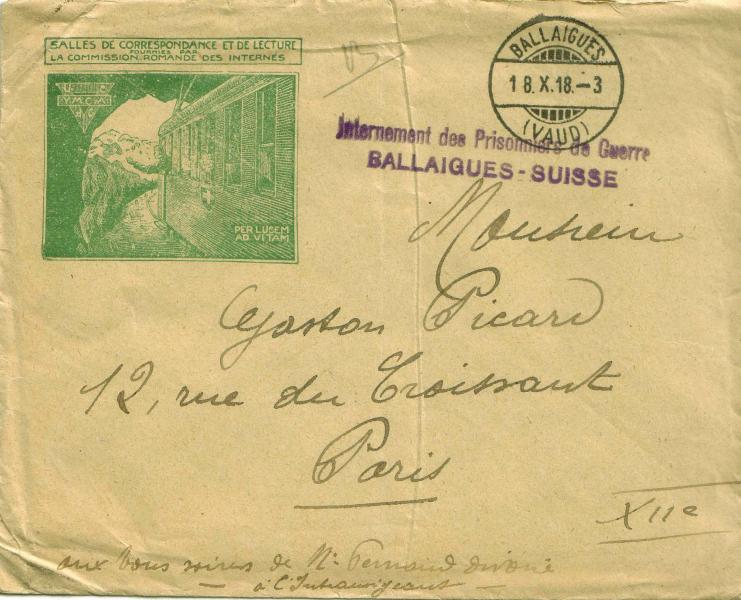 SALLES DE CORRESPONDANCE ET DE LECTURE
FOURNIES PAR
LA COMMISSION ROMANDE DES INTERNÉS
Y.M.C.A.
PER LUCEM
AD VITAM
BALLAIGUES
18.X.18.-3
(VAUD)
Internement des Prisonniers de Guerre
BALLAIGUES-SUISSE
Monsieur
Gaston Picard
12, rue du Croissant
Paris
XIIe
aux bons soins de Mr Fernand Divoire
à l'Intransigeant